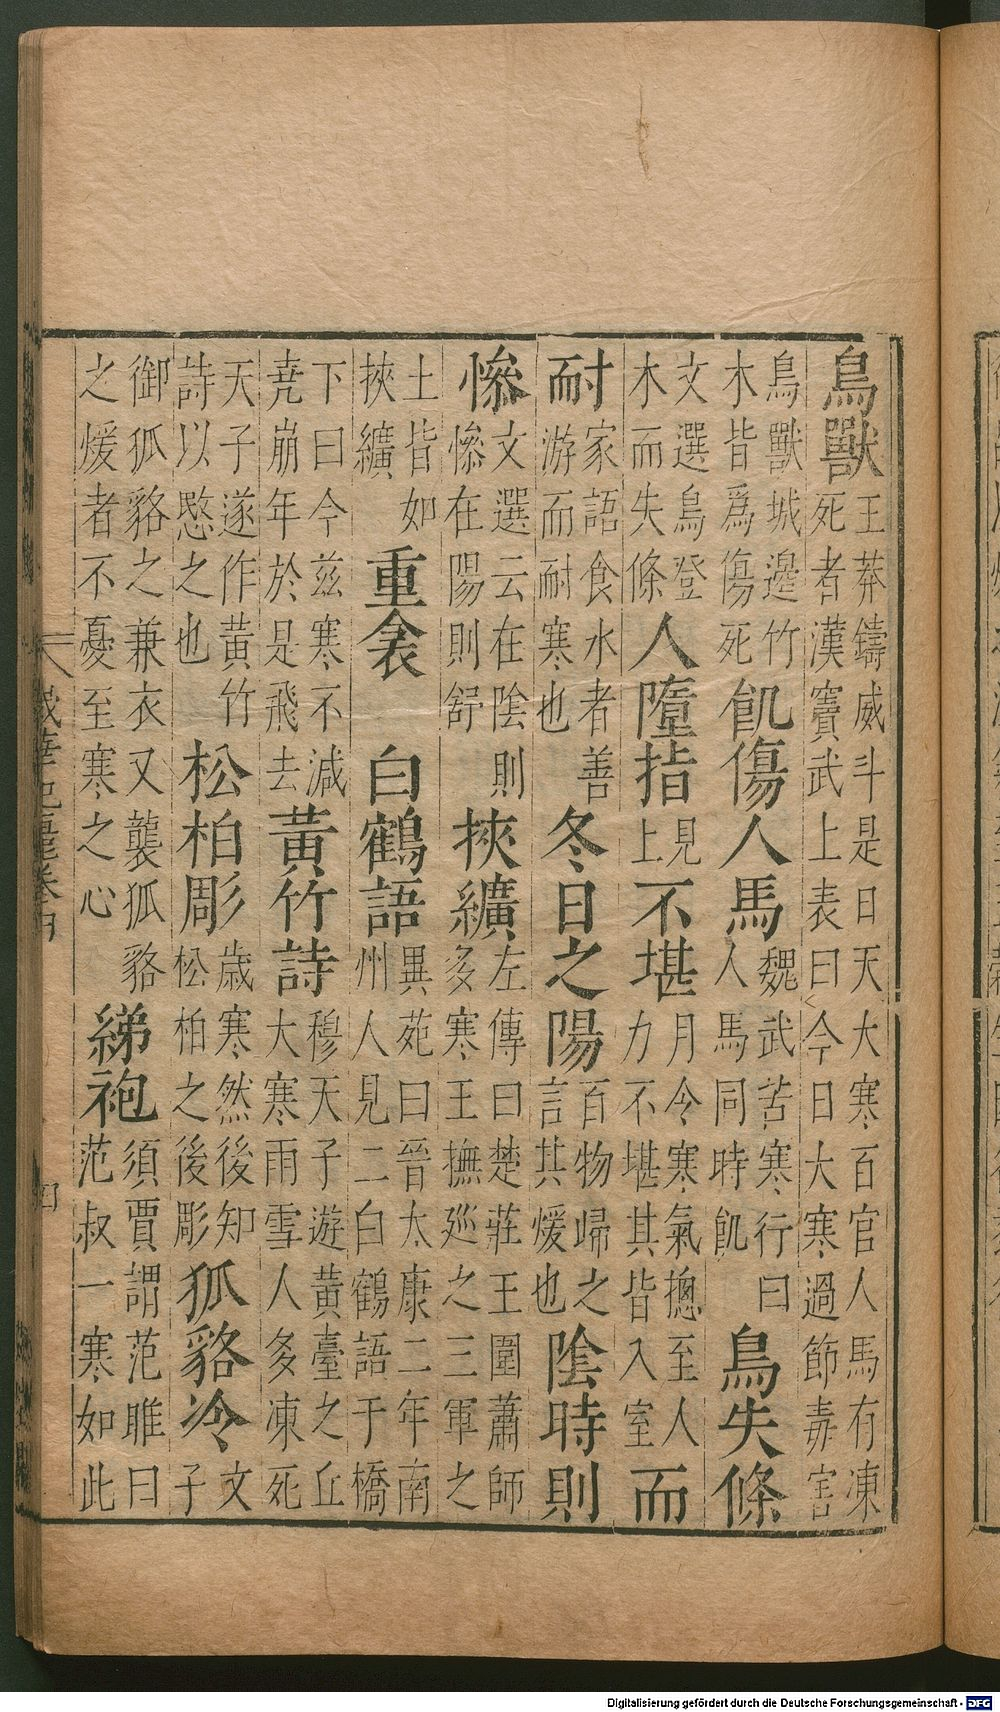 鳥獸王莽鑄威斗是日天大寒百官人馬有凍死者漢竇武上表曰今日大寒過節毒害
鳥獸城邊竹木皆爲傷死飢傷人馬魏武苦寒行曰人馬同時飢鳥失條
文選鳥登木而失條人墮指見上不堪月令寒氣摠至人力不堪其皆入室而
耐家語食水者善游而耐寒也冬日之陽百物歸之言其煖也陰時則
慘文選云在陰則慘在陽則舒挾纊左傳曰楚莊王圍蕭師多寒王撫巡之三軍之
士皆如挾纊重衾白鶴語異苑曰晉太康二年南州人見二白鶴語于橋
下曰今茲寒不減堯崩年於是飛去黃竹詩穆天子遊黃臺之丘大寒雨雪人多凍死
天子遂作黃竹詩以愍之也松柏彫歲寒然後知松柏之後彫狐貉冷文子
御狐貉之兼衣又襲狐貉之煖者不憂至寒之心綈袍須賈謂范睢曰范叔一寒如此
歲華紀麗卷四
Digitalisierung gefördert durch die Deutsche Forschungsgemeinschaft - DFG